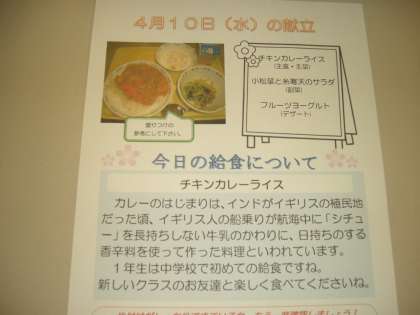 4月10日(水)の献立
チキンカレーライス
(主食・主菜)
小松菜と糸寒天のサラダ
(副菜)
フルーツヨーグルト
(デザート)
盛りつけの
参考にして下さい。
今日の給食について
チキンカレーライス
カレーのはじまりは、インドがイギリスの植民地
だった頃、イギリス人の船乗りが航海中に「シチュ
ー」を長持ちしない牛乳のかわりに、日持ちのする
香辛料を使って作った料理といわれています。
1年生は中学校で初めての給食ですね。
新しいクラスのお友達と楽しく食べてくださいね。